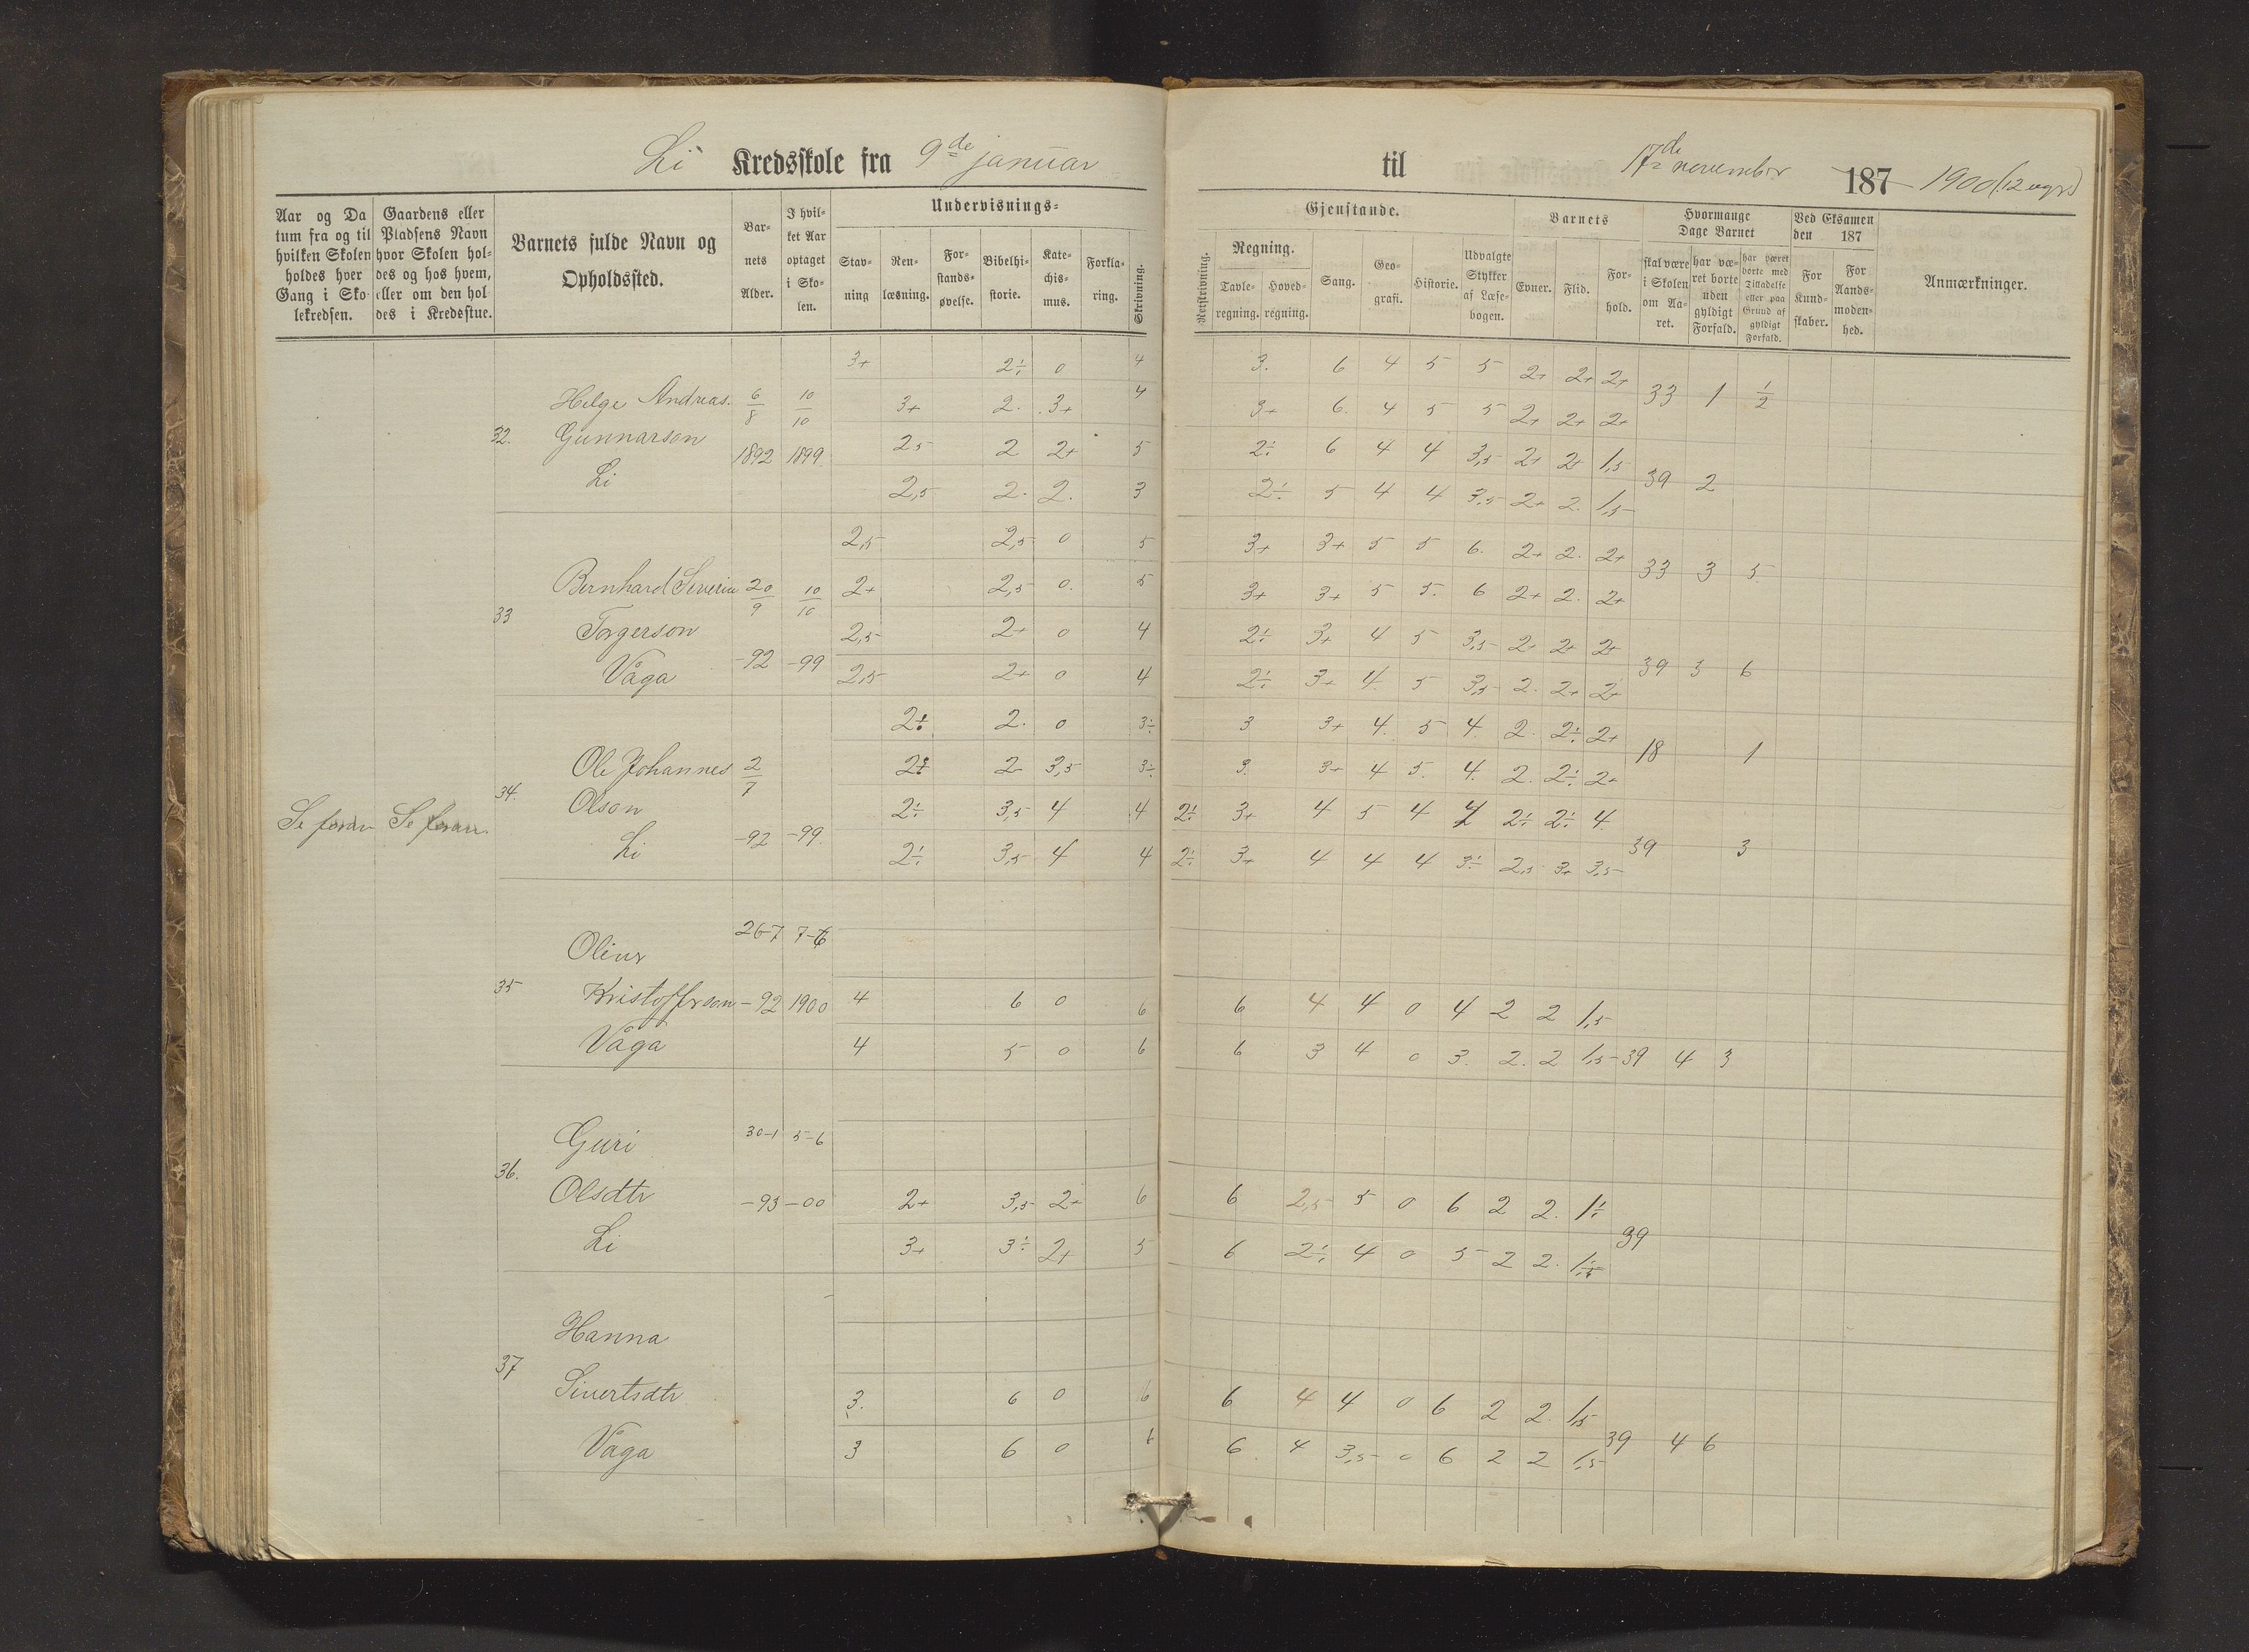 Li Kredsskole fra 9de januar til 17de november 187 1900 (12 uger)
Aar og Datum fra og til hvilken Skolen holdes hver Gang i Skolekredsen.
Gaardens eller Pladsens Navn hvor Skolen holdes og hos hvem, eller om den holdes i Kredsstue.
Barnets fulde Navn og Opholdssted.
Barnets Alder.
I hvilket Aar optaget i Skolen.
Undervisnings-
Stavning
Renlæsning.
Forstandsøvelse.
Bibelhistorie.
Katechismus.
Forklaring.
Skrivning.
Gjenstande.
Retskrivning.
Regning.
Tavleregning.
Hovedregning.
Sang.
Geografi.
Historie.
Udvalgte Stykker af Læsebogen.
Barnets
Evner.
Flid.
Forhold.
Hvormange Dage Barnet
skal være i Skolen om Aaret.
har været borte uden gyldigt Forfald.
har været borte med Tilladelse eller paa Grund af gyldigt Forfald.
Ved Eksamen den 187
For Kundskaber.
For Aandsmodenhed.
Anmærkninger.
3+ 2÷ 0 4 3. 6 4 5 5 2+ 2+ 2+
Helge Andreas. 6/8 10/10 3+ 2. 3+ 4 3+ 6. 4 5 5 2+ 2+ 2+ 33 1 1/2
32. Gunnarson 1892 1899. 25 2 2+ 5 2÷ 6 4 4 3,5 2+ 2+ 1,5
Li 2,5 2. 2. 3 2÷ 5 4 4 3,5 2+ 2. 1,5 39 2
2,5 2,5 0 5 3+ 3+ 5 5 6. 2+ 2. 2+
Bernhard Severin 20/9 10/10 2+ 2,5 0. 5 3+ 3+ 5 5. 6 2+ 2. 2+ 33 3 5
33 Torgerson 2,5 2+ 0 4 2÷ 3+ 4 5 3,5 2+ 2+ 2+
Våga -92 -99 2,5 2+ 0 4 2÷ 3+ 4. 5 3,5 2. 2+ 2+ 39 3 6
2÷ 2. 0 3÷ 3 3+ 4. 5 4. 2. 2÷ 2+
Ole Johannes 2/7 2÷ 2 3,5 3÷ 3. 3+ 4 5. 4. 2. 2÷ 2+ 18 1
34. Olson 2÷ 3,5 4 4 2÷ 3+ 4 5 4 4 2÷ 2÷ 4.
Se foran Se foran
Li -92 -99. 2÷ 3,5 4 4 2÷ 3+ 4 4 4 3÷ 2,5 3+ 3,5 39 3
Oliver 26-7 7-6
35 Kristofferson -92 1900 4 6 0 6 6 4 4 0 4 2 2 1,5
Våga 4 5 0 6 6 3 4 0 3. 2. 2 1,5 39 4 3
Guri 30-1 5-6
36. Olsdtr -93 -00 2+ 3,5 2+ 6 6 2,5 5 0 6 2 2. 1÷
Li 3+ 3÷ 2+ 5 6 2÷ 4 0 5 2 2. 39
Hanna
37 Sivertsdtr 3. 6 0 6 6 4 4 0 6 2 2. 1,5
Våga 3 6 0 6. 4 3,5 0 6 2 2 1,5 39 4 6